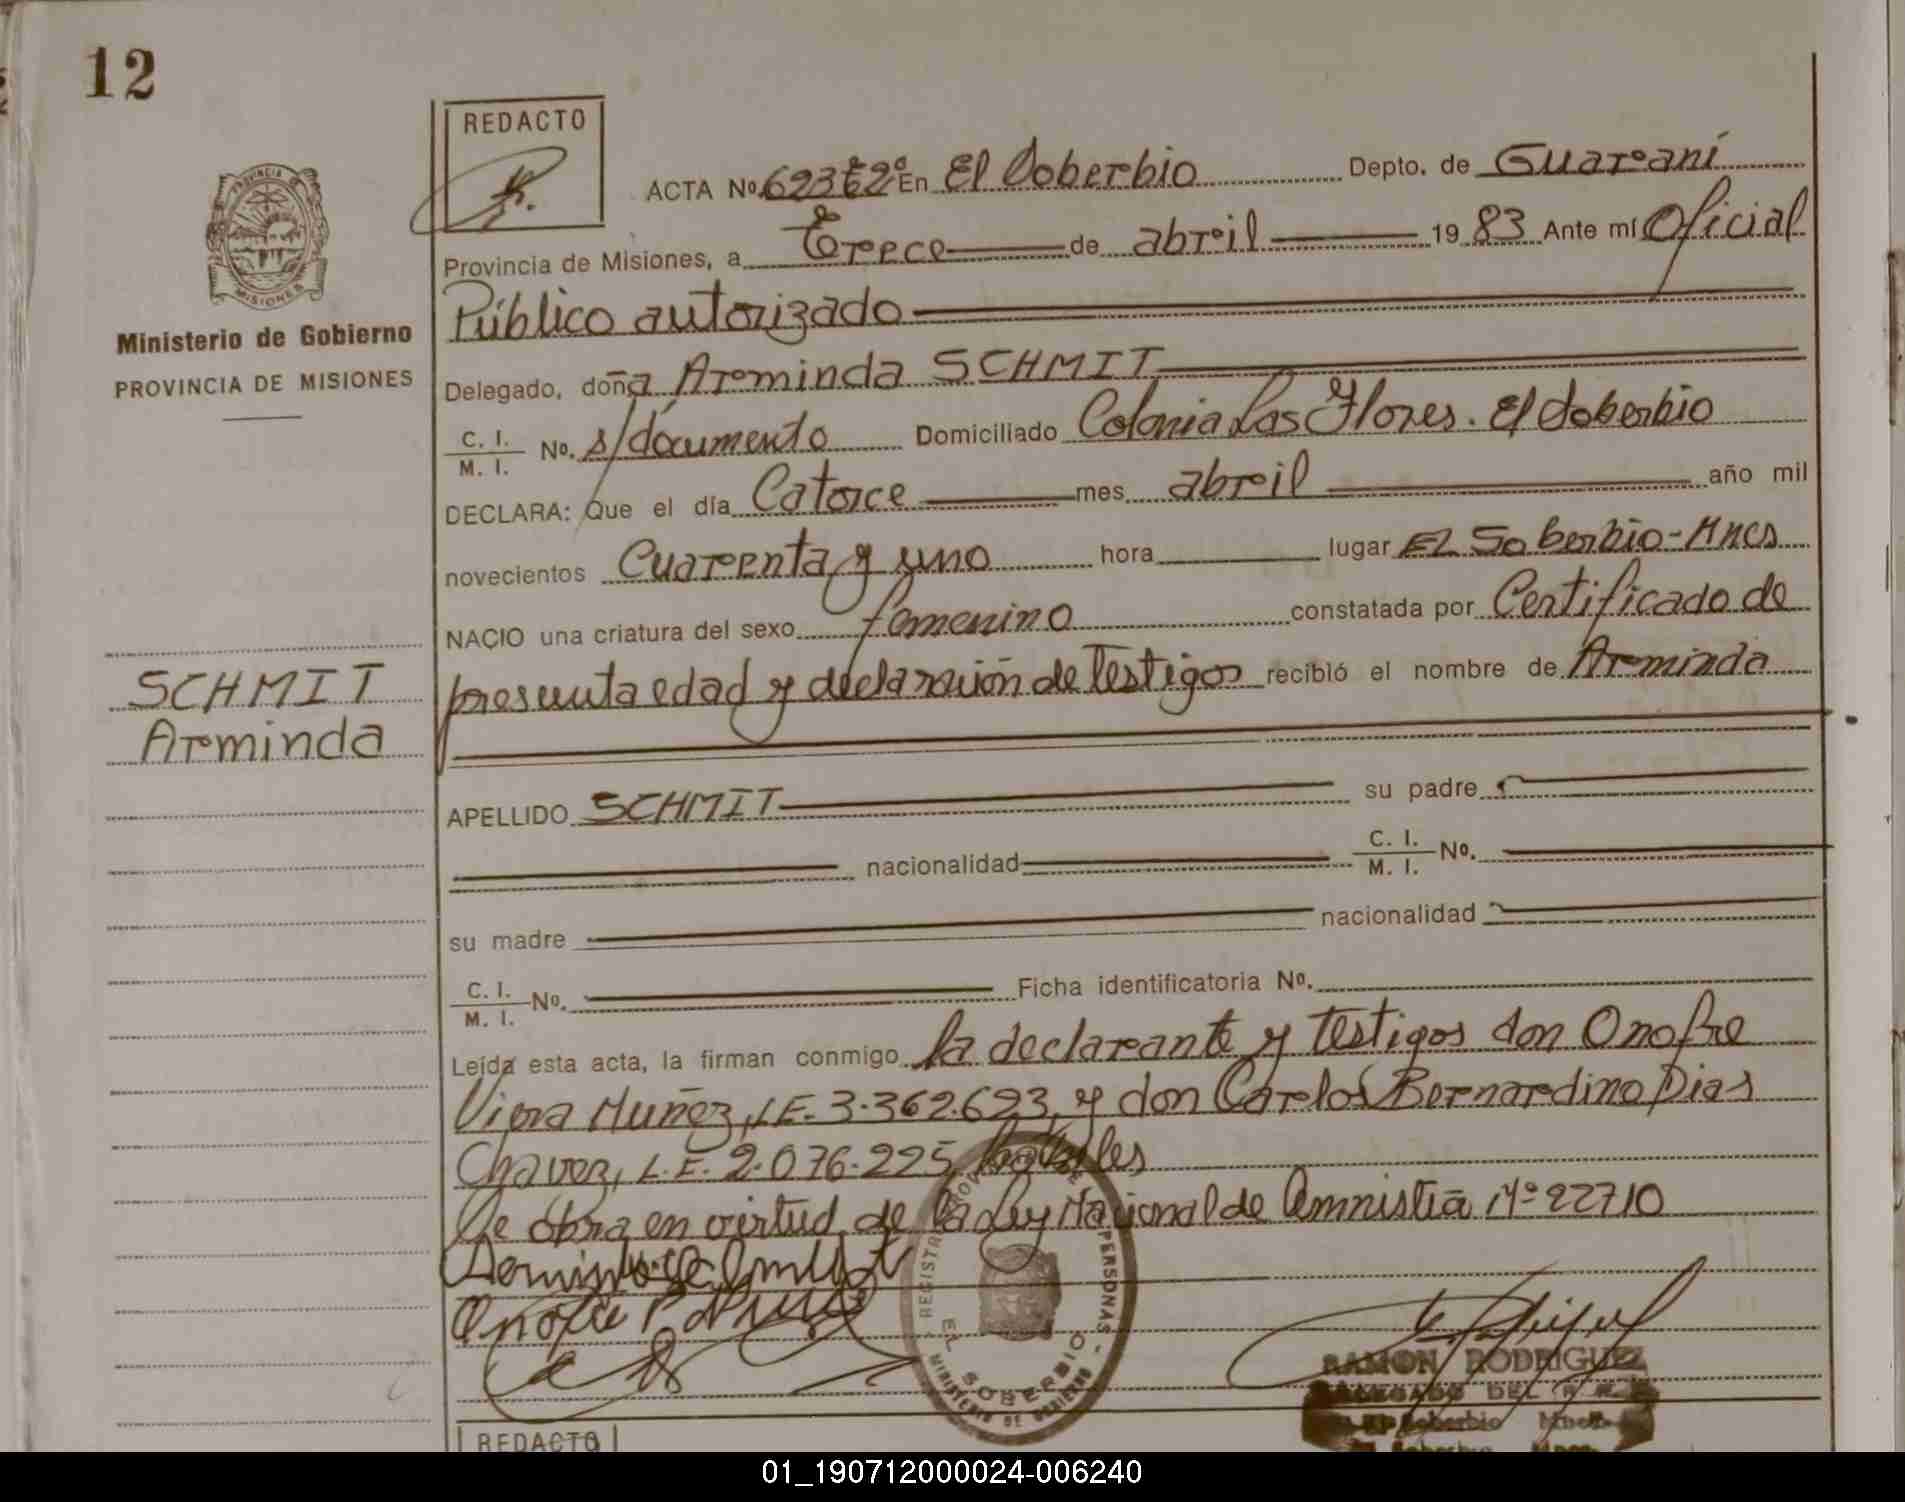 12
REDACTO
ACTA Nº 623 tº 2º En El Soberbio Depto. de Guaraní
Provincia de Misiones, a trece de abril 19 83 Ante mí Oficial
Público autorizado
PROVINCIA DE
MISIONES
Ministerio de Gobierno
PROVINCIA DE MISIONES
Delegado, doña Arminda SCHMIT
C. I.
M. I. Nº. s/documento Domiciliado Colonia Las Flores. El Soberbio
DECLARA: Que el día Catorce mes abril año mil
novecientos Cuarenta y uno hora lugar EL Soberbio-Mnes
NACIO una criatura del sexo femenino constatada por Certificado de
presunta edad y declaración de Testigos recibió el nombre de Arminda
SCHMIT
Arminda
APELLIDO SCHMIT su padre
nacionalidad C. I.
M. I. Nº.
su madre nacionalidad
C. I.
M. I. Nº. Ficha identificatoria Nº.
Leída esta acta, la firman conmigo la declarante y Testigos don Onofre
Viera Muñez, L.E. 3.362.623, y don Carlos Bernardino Dias
Chavez, L.E. 2.076.225 habiles
Se obra en virtud de la Ley Nacional de Amnistia Nº 22710
REGISTRO PERSONAS
EL SOBERBIO
MINISTERIO DE GOBIERNO
RAMON RODRIGUEZ
DELEGADO DEL
El Soberbio Mnes.
REDACTO
01_190712000024-006240